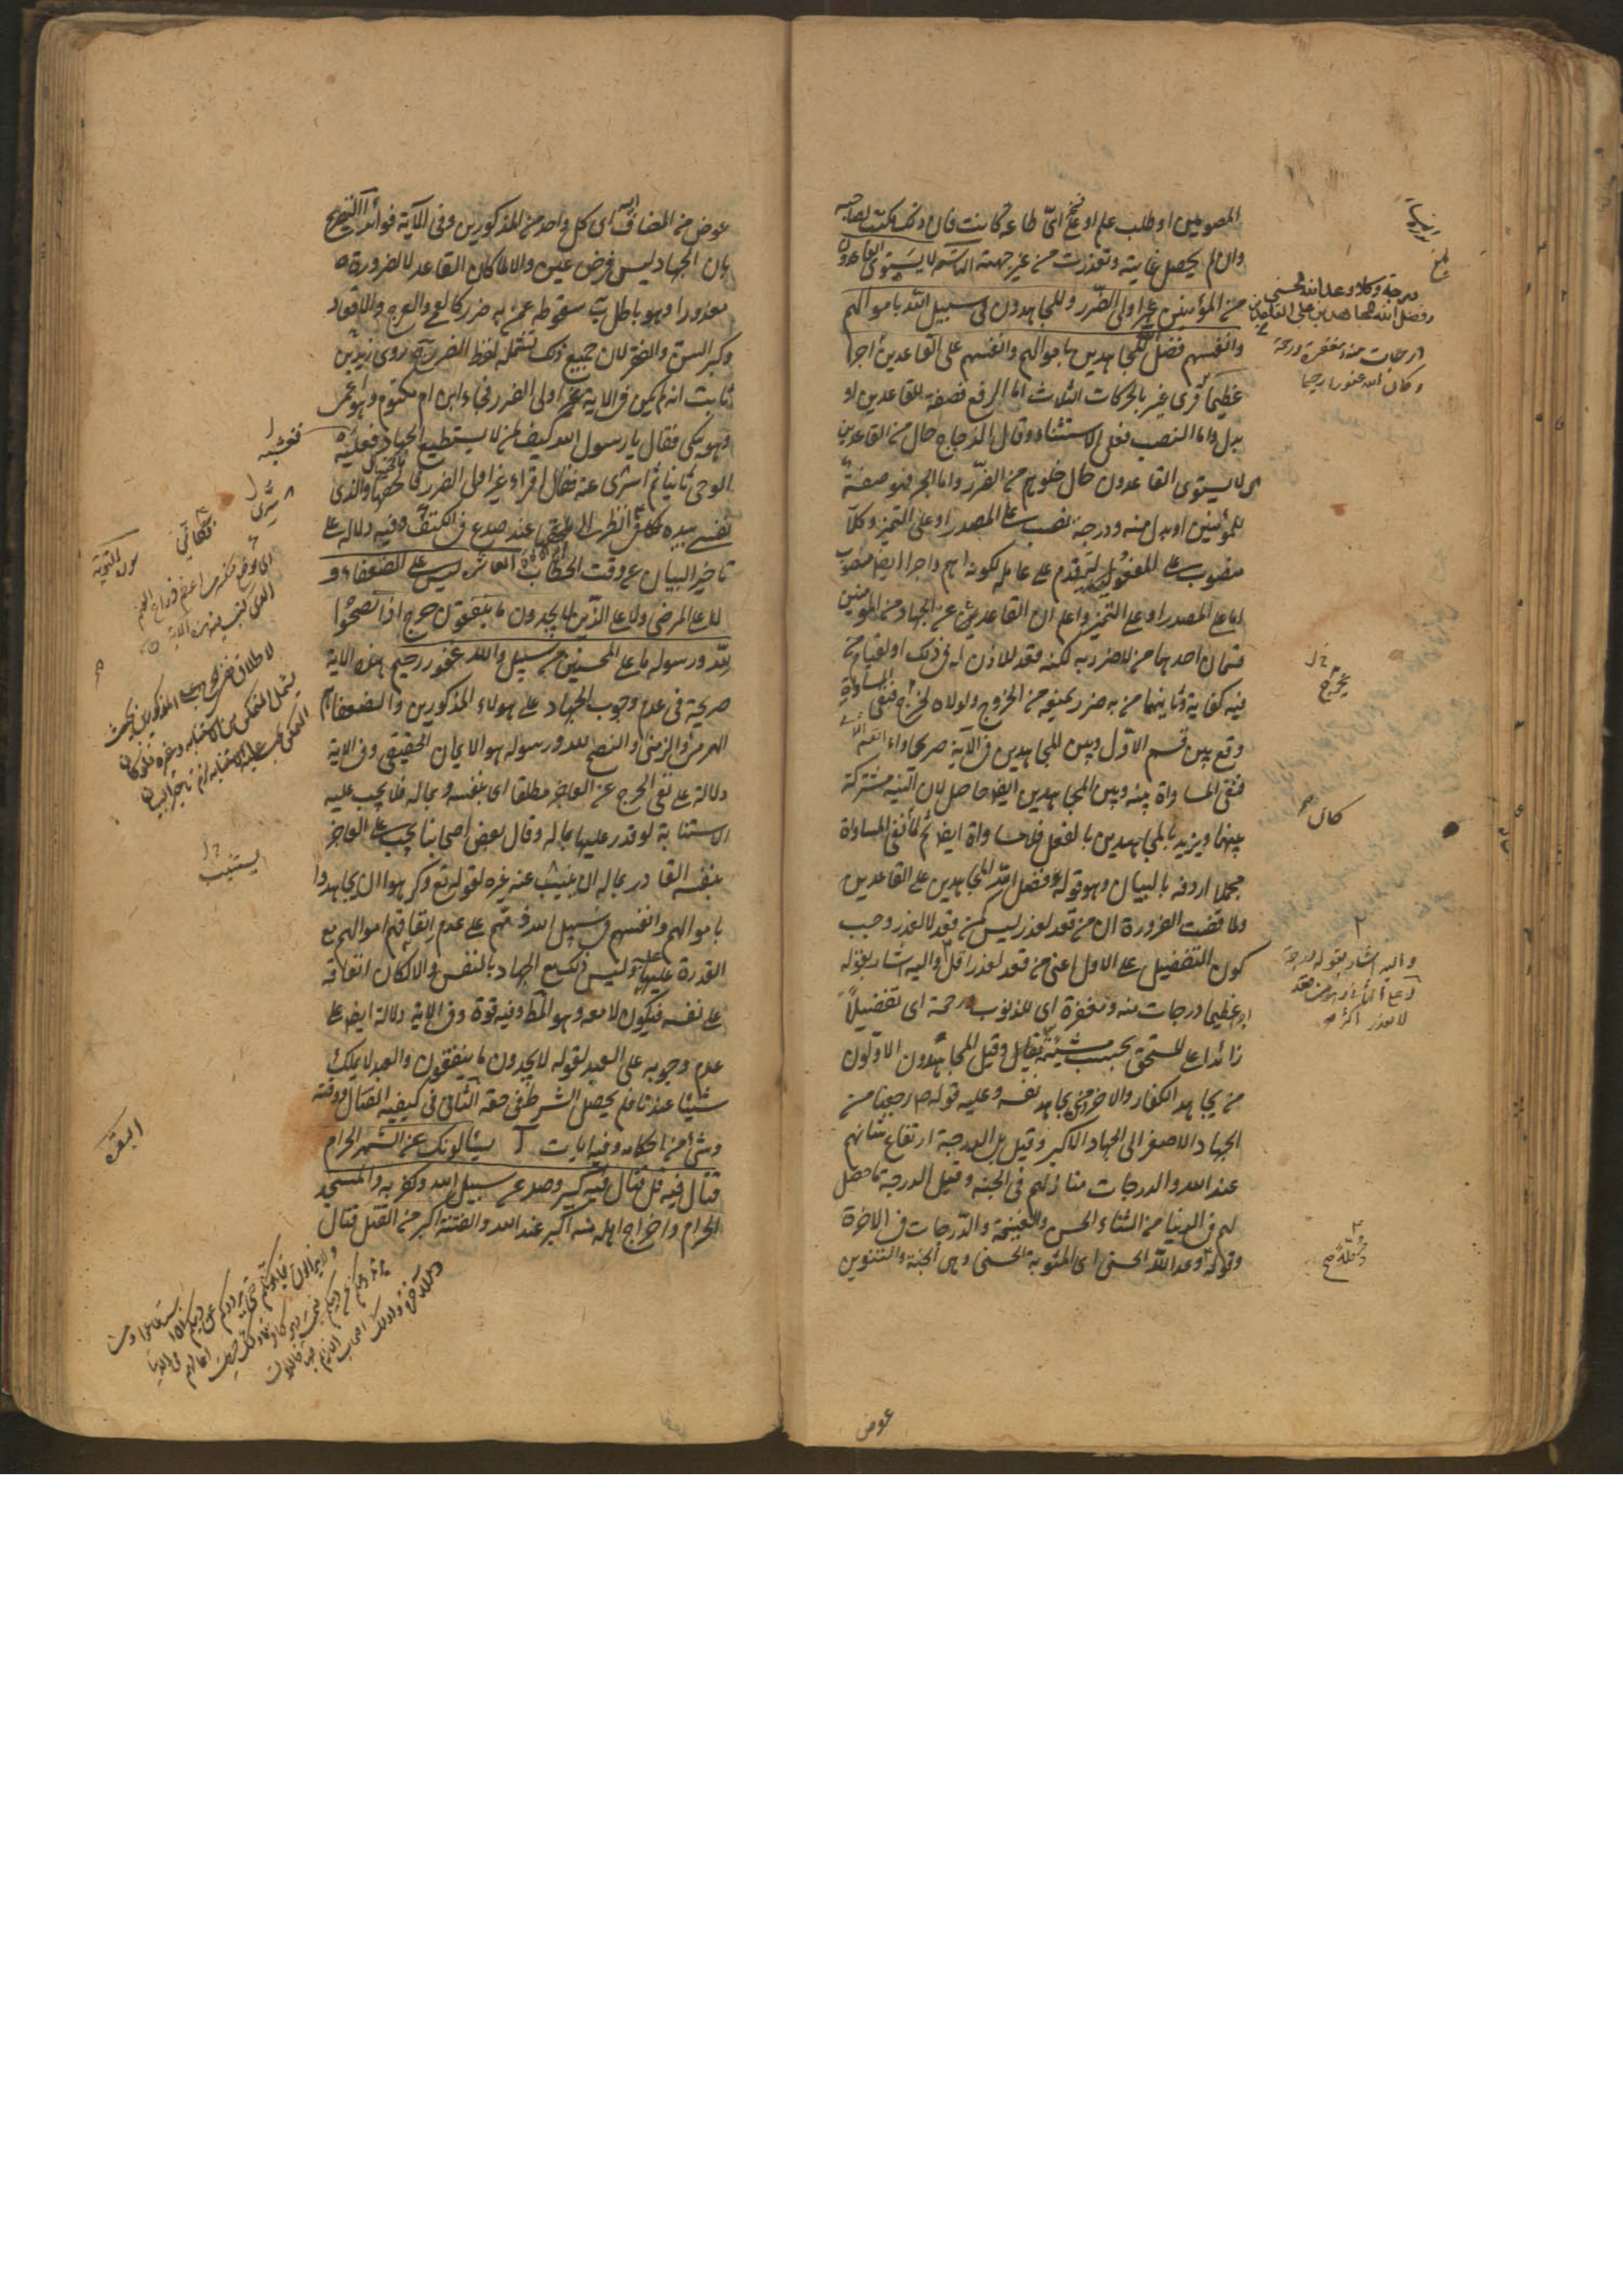 المصوبين او طلب علم او حج اىّ طاعة كانت فان ذلك يكتب لصاحبه
وان لم يحصل غايته وتعذرت من غير جهته التاسعه لا يستوى القاعدون
من المؤمنين غير اولى الضّرر والمجاهدون فى سبيل الله باموالهم
وانفسهم فضل الله المجاهدين باموالهم وانفسهم على القاعدين اجرا
عظيما قرى غير بالحركات الثلاث اما الرفع فصفة للقاعدين او
بدل واما النصب فعلى الاستثناء وقال الزجاج حال من القاعدين
اى لا يستوى القاعدون حال خلوهم من الضرّر واما الجر فهو صفة
للمؤمنين او بدل منه ودرجة نصب على المصدر او على التميز وكلاّ
منصوب على المفعولية لتقدم على عامله لكونه اهم واجرا ايضا منصوب
اما على المصدر او على التميز واعلم ان القاعدين عن الجهاد من المؤمنين
قسمان احدهما من لا ضرر به لكنه فقد للاذن له فى ذلك او لقيام من
فيه كفاية وثانيهما من به ضرر يمنعه من الخروج ولولاه لخرج فنفى المساواة
وقع بين قسم الاول وبين المجاهدين فى الآية صريحا واما القسم الثانى
فنفى المساواة بينه وبين المجاهدين ايضا حاصل لان النية مشتركة
بينهما ويزيد المجاهدين بالفعل فلا مساواة ايضا ثم لما نفى المساواة
مجملا اردفه بالبيان وهو قوله وفضل الله المجاهدين على القاعدين
ولما قضت الضرورة ان من قعد لعذر ليس كمن قعد لا لعذر وجب
كون التفضيل على الاول اعنى من قعد لعذر اقل واليه اشار بقوله
اجرا عظيما درجات منه ومغفرة اى للذنوب ورحمة اى تفضيلاً
زائدا على المستحق بحسب مشيته تعالى وقيل المجاهدون الاولون
من يجاهد الكفار والاخر من يجاهد نفسه وعليه قوله ص رجعنا من
الجهاد الاصغر الى الجهاد الاكبر وقيل بل الدرجة ارتفاع شانهم
عند الله والدرجات منازلهم فى الجنة وقيل الدرجة ما حصل
لهم فى الدنيا من الثناء الحسن والغنيمة والدّرجات فى الاخرة
وقوله وكلا وعد الله الحسنى اى المثوبة الحسنى وهى الجنة والتنوين
عوض
درجة وكلا وعد الله الحسنى
وفضل الله المجاهدين على القاعدين
درجات منه ومغفرة ورحمة
وكان الله غفورا رحيما
يخرج
كان
واليه اشار بقوله درجة
لا لعذر اكثر
عوض من المضاف اليه اى كل واحد من المذكورين وفى الآية فوائد آ التصريح
بان الجهاد ليس فرض عين والا لما كان القاعد لا لضرورة
معذورا وهو باطل ب سقوطه عمن به ضرر كالعمى والعرج والاقعاد
وكبر السن والفقر لان جميع ذلك تشمله لفظ الضرر ج روى زيد بن
ثابت انه لم يكن فى الاية غير اولى الضرر فجاء ابن ام مكتوم وهو اعمى
وهو يبكى فقال يا رسول الله كيف لمن لا يستطيع الجهاد فغشيه
الوحى ثانيا ثم اسرى عنه فقال اقراء غير اولى الضرر فالحقتها والذى
نفسى بيده لكانى انظر الى ملحقها عند صدع فى الكتف وفيه دلالة على
تاخير البيان عن وقت الخطاب العاشرة ليس على الضعفاء و
لا على المرضى ولا على الذين لا يجدون ما ينفقون حرج اذا نصحوا
لله ورسوله ما على المحسنين من سبيل والله غفور رحيم هذه الاية
صريحة فى عدم وجوب الجهاد على هولاء المذكورين والضعفاء
الهرمى والزمنى والنصح لله ورسوله هو الايمان الحقيقى وفى الاية
دلالة على نفى الحرج عن العاجز مطلقا اى بنفسه وبماله فلا يجب عليه
الاستنابة لو قدر عليها بماله وقال بعض اصحابنا يجب على العاجز
بنفسه القادر بماله ان ينيب عنه غيره لقوله تع وكرهوا ان يجاهدوا
باموالهم وانفسهم فى سبيل الله فذمهم على عدم انفاقهم اموالهم مع
القدرة عليها وليس ذلك مع الجهاد بالنفس والا لكان انفاقه
على نفسه فيكون لا معه وهو المط وفيه قوة وفى الاية دلالة ايضا على
عدم وجوبه على العبد لقوله لا يجدون ما ينفقون والعبد لا يملك
شيئا عندنا فلم يحصل الشرط فى حقه الثانى فى كيفية القتال ووقته
وشئ من احكامه وفيه ايات آ يسئلونك عن الشهر الحرام
قتال فيه قل قتال فيه كبير وصد عن سبيل الله وكفر به والمسجد
الحرام واخراج اهله منه اكبر عند الله والفتنة اكبر من القتل قتال
فغشيه
سرى
فكانى
سورة التوبة
يستنيب
البقرة
ولا يزالون يقاتلونكم حتى يردوكم عن دينكم ان استطاعوا ومن
يرتدد منكم عن دينه فيمت وهو كافر فاولئك حبطت اعمالهم فى الدنيا
والآخرة واولئك اصحاب النار هم فيها خالدون